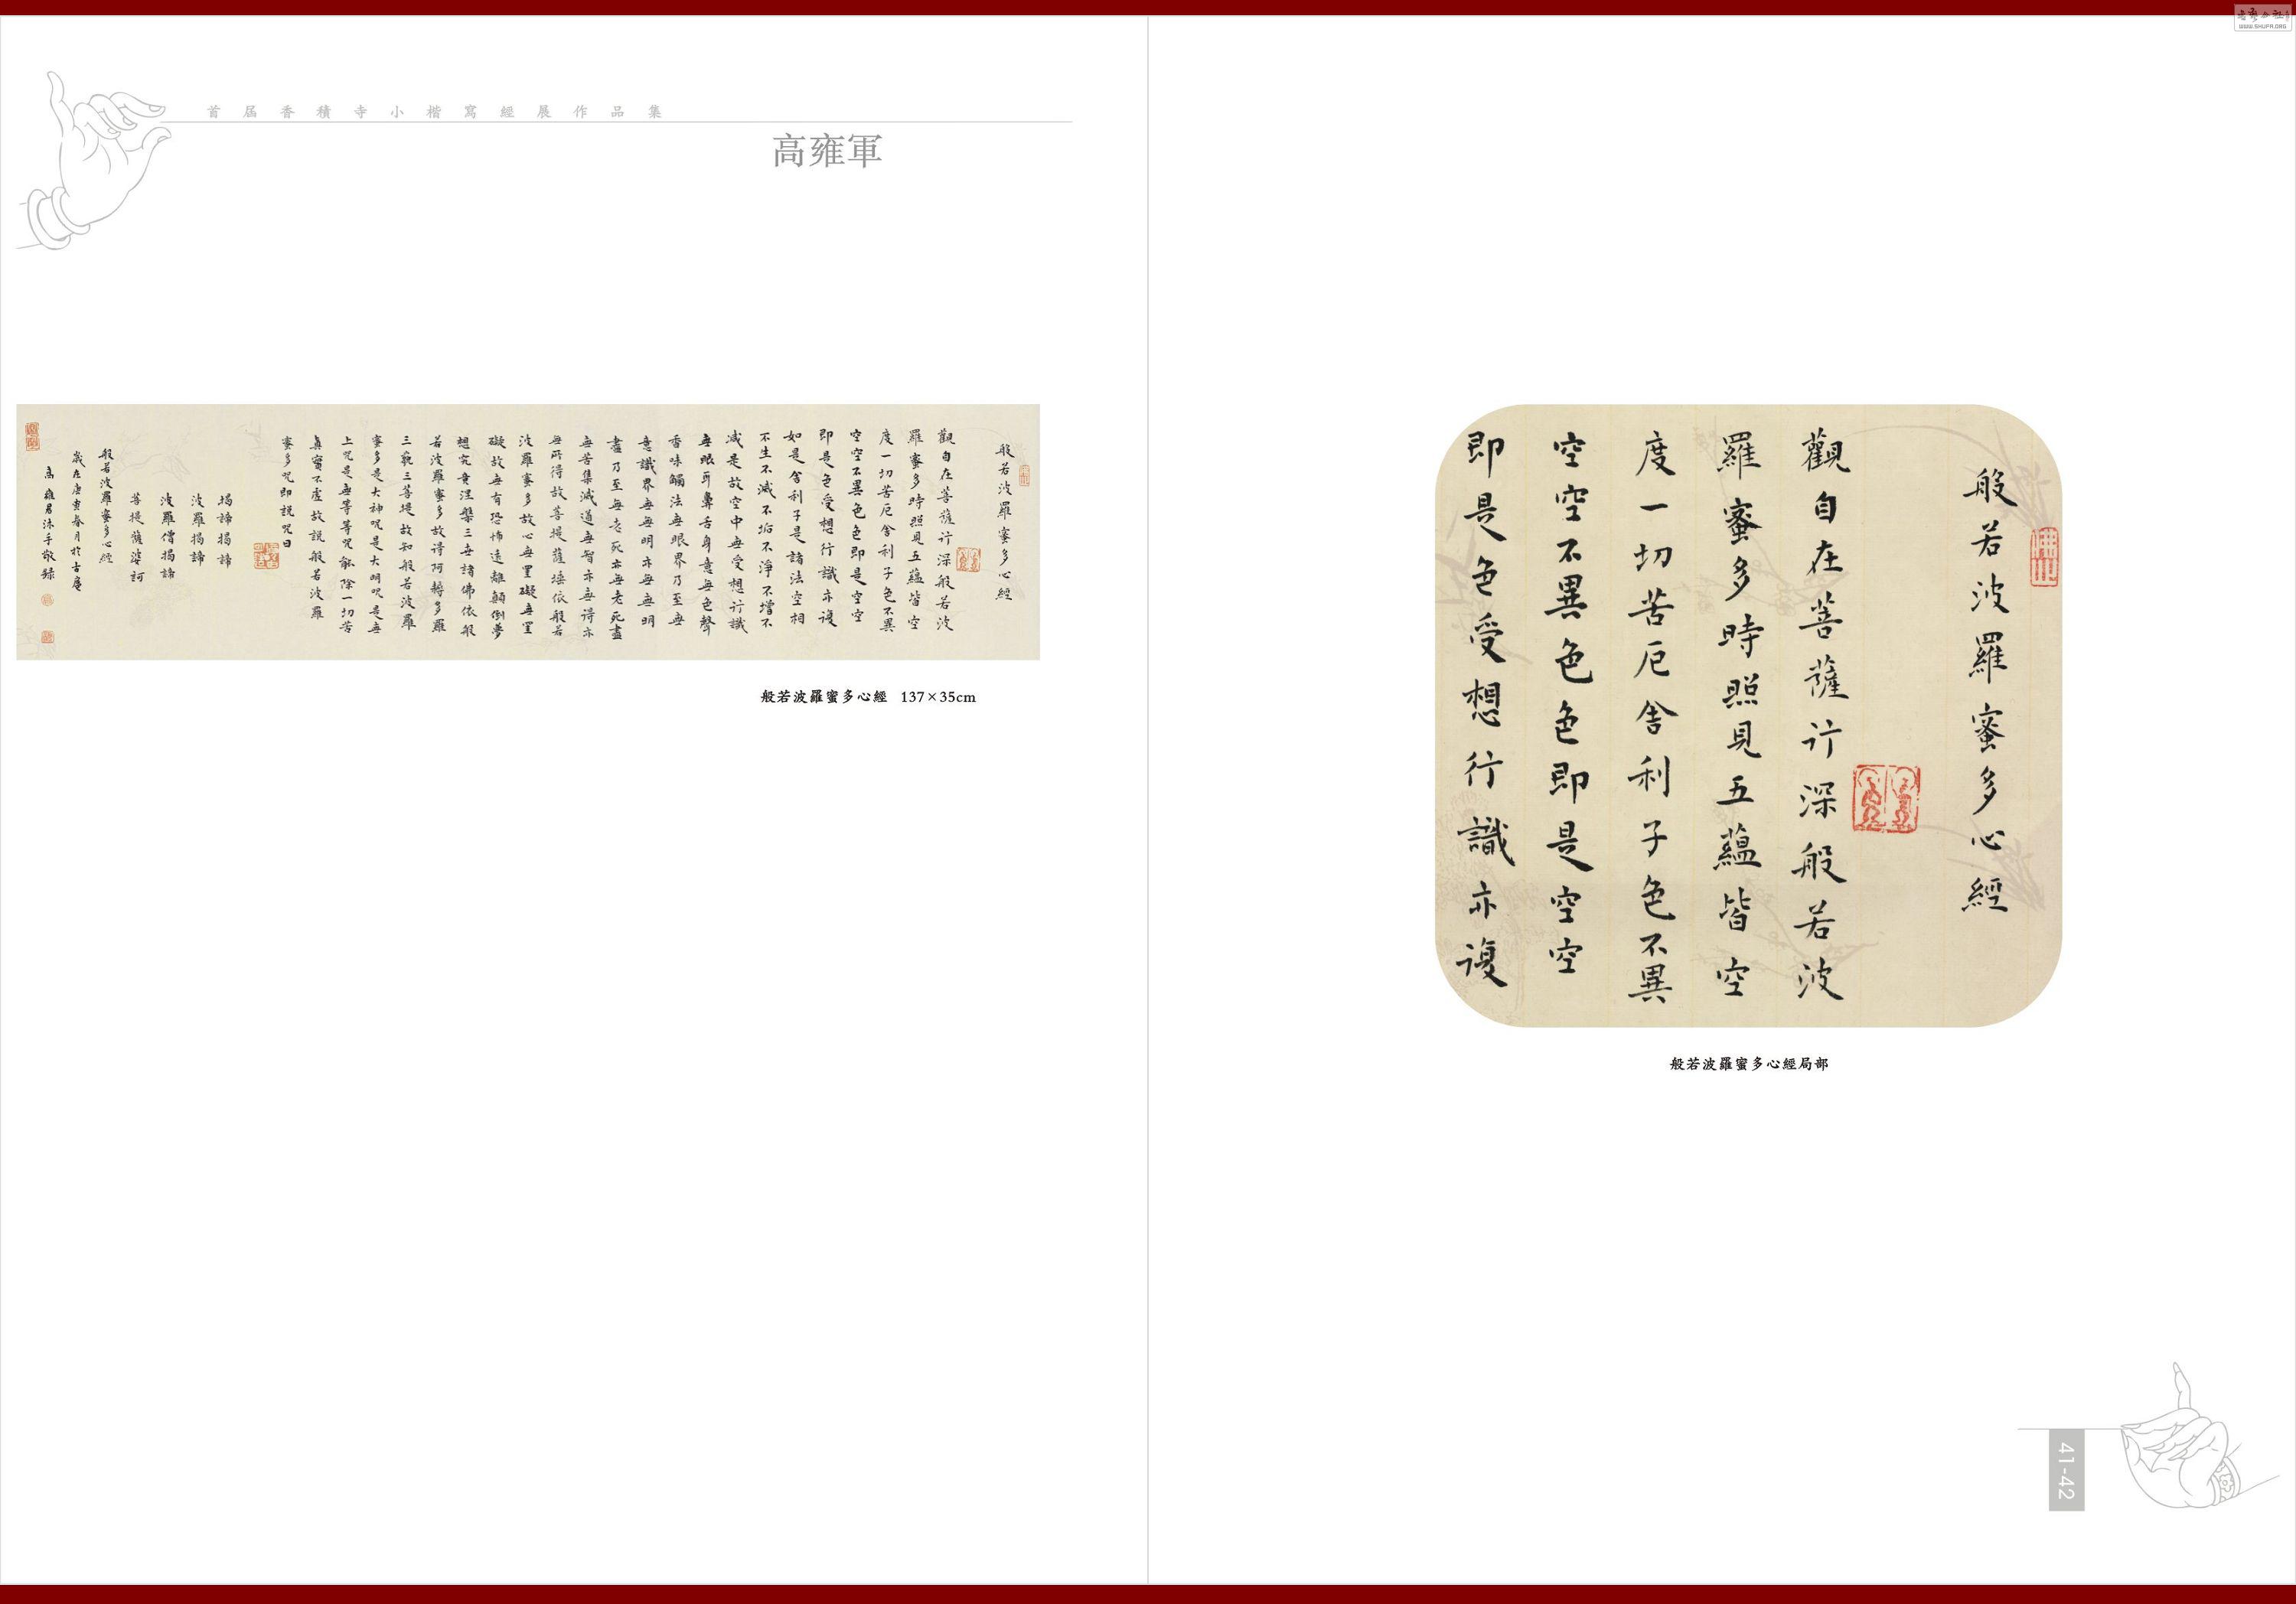 首届香積寺小楷寫經展作品集
高雍軍
般若波羅蜜多心經
觀自在菩薩行深般若波
羅蜜多時照見五蘊皆空
度一切苦厄舍利子色不異
空空不異色色即是空空
即是色受想行識亦復
如是舍利子是諸法空相
不生不滅不垢不淨不增不
減是故空中無受想行識
無眼耳鼻舌身意無色聲
香味觸法無眼界乃至無
意識界無無明亦無無明
盡乃至無老死亦無老死盡
無苦集滅道無智亦無得亦
無所得故菩提薩埵依般若
波羅蜜多故心無罣礙無罣
礙故無有恐怖遠離顛倒夢
想究竟涅槃三世諸佛依般
若波羅蜜多故得阿耨多羅
三藐三菩提故知般若波羅
蜜多是大神咒是大明咒是無
上咒是無等等咒能除一切苦
真實不虛故說般若波羅
蜜多咒即說咒曰
揭諦揭諦
波羅揭諦
波羅僧揭諦
菩提薩婆訶
般若波羅蜜多心經
歲在庚寅春月於古庵
高雍君沐手敬錄
般若波羅蜜多心經 137×35cm
般若波羅蜜多心經
觀自在菩薩行深般若波
羅蜜多時照見五蘊皆空
度一切苦厄舍利子色不異
空空不異色色即是空空
即是色受想行識亦復
般若波羅蜜多心經局部
41-42
WWW.SHUFA.ORG